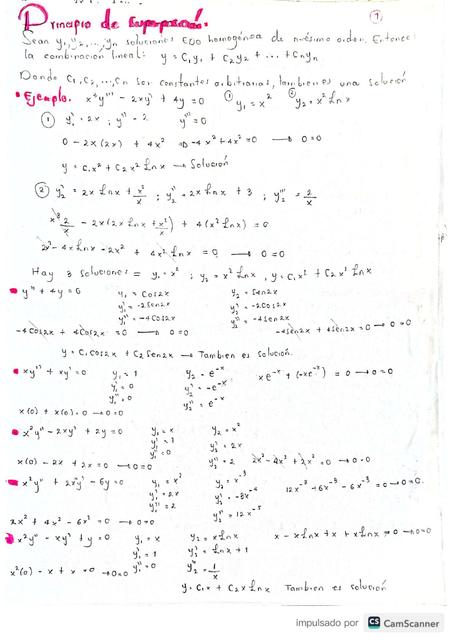 Principio de Superposición. 1
Sean y₁, y₂, ..., yₙ soluciones EDO homogénea de n-ésimo orden. Entonces
la combinación lineal: y = C₁y₁ + C₂y₂ + ... + Cₙyₙ
Donde C₁, C₂, ..., Cₙ son constantes arbitrarias, tambien es una solución
• Ejemplo. x³y''' - 2xy' + 4y = 0 ① y₁ = x² ② y₂ = x² ln x
① y₁' = 2x ; y₁'' = 2 y₁''' = 0
0 - 2x(2x) + 4x² = 0 → -4x² + 4x² = 0 → 0=0
y = C₁x² + C₂x² ln x → Solución
② y₂' = 2x ln x + x²/x ; y₂'' = 2x ln x + 3 ; y₂''' = 2/x
x³ 2/x - 2x(2x ln x + x²/x) + 4(x² ln x) = 0
2x² - 4x ln x - 2x² + 4x² ln x = 0 → 0=0
Hay 3 soluciones = y₁ = x² ; y₂ = x² ln x , y = C₁x² + C₂x² ln x
• y'' + 4y = 0 y₁ = Cos2x y₂ = Sen2x
y₁' = -2Sen2x y₂' = -2Cos2x
y₁'' = -4Cos2x y₂'' = -4Sen2x
-4Cos2x + 4Cos2x = 0 → 0=0 -4Sen2x + 4Sen2x = 0 → 0=0
y = C₁Cos2x + C₂Sen2x → Tambien es solución.
• xy'' + xy' = 0 y₁ = 1 y₂ = e⁻ˣ xe⁻ˣ + (-xe⁻ˣ) = 0 → 0=0
y₁' = 0 y₂' = -e⁻ˣ
y₁'' = 0 y₂'' = e⁻ˣ
x(0) + x(0) = 0 → 0=0
• x²y'' - 2xy' + 2y = 0 y₁ = x y₂ = x²
y₁' = 1 y₂' = 2x
y₁'' = 0 y₂'' = 2 2x² - 4x² + 2x² = 0 → 0=0
x(0) - 2x + 2x = 0 → 0=0
• x²y'' + 2xy' - 6y = 0 y₁ = x² y₂ = x⁻³
y₁' = 2x y₂' = -3x⁻⁴ 12x⁻³ - 6x⁻³ - 6x⁻³ = 0 → 0=0.
y₁'' = 2 y₂'' = 12x⁻⁵
2x² + 4x² - 6x² = 0 → 0=0
• x²y'' - xy' + y = 0 y₁ = x y₂ = x ln x x - x ln x + x + x ln x = 0 → 0=0
y₁' = 1 y₂' = ln x + 1
x²(0) - x + x = 0 → 0=0 y₁'' = 0 y₂'' = 1/x
y = C₁x + C₂x ln x Tambien es solución
impulsado por CS CamScanner